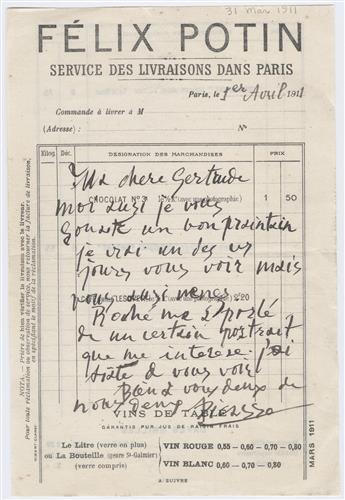 31 Mar 1911
FÉLIX POTIN
SERVICE DES LIVRAISONS DANS PARIS
Paris, le 1er Avril 1911
Commande à livrer à M
(Adresse) : N°
Kilog. Déc. DÉSIGNATION DES MARCHANDISES PRIX
Ma chere Gertrude
CHOCOLAT N° 3 1 50
moi ausi je vous
souaite un bon praintain
je vrai un des
jours vous voir mais
vous ausi menes
2 20
Roché ma parlé
de un certain portrait
que me interese. j'ai
ate de vous voir
Bien a vous deux de
nous deux Picasso
VINS DE TABLE
GARANTIS PUR JUS DE RAISIN FRAIS
Le Litre (verre en plus) VIN ROUGE 0,55 - 0,60 - 0,70 - 0,80
ou La Bouteille (genre St-Galmier) (verre compris) VIN BLANC 0,60 - 0,70 - 0,80
A SUIVRE
MARS 1911
NOTA. — Prière de bien vérifier la livraison avec le livreur.
Pour toute réclamation ou omission de service, nous retourner la facture de livraison, en spécifiant le motif de la réclamation.